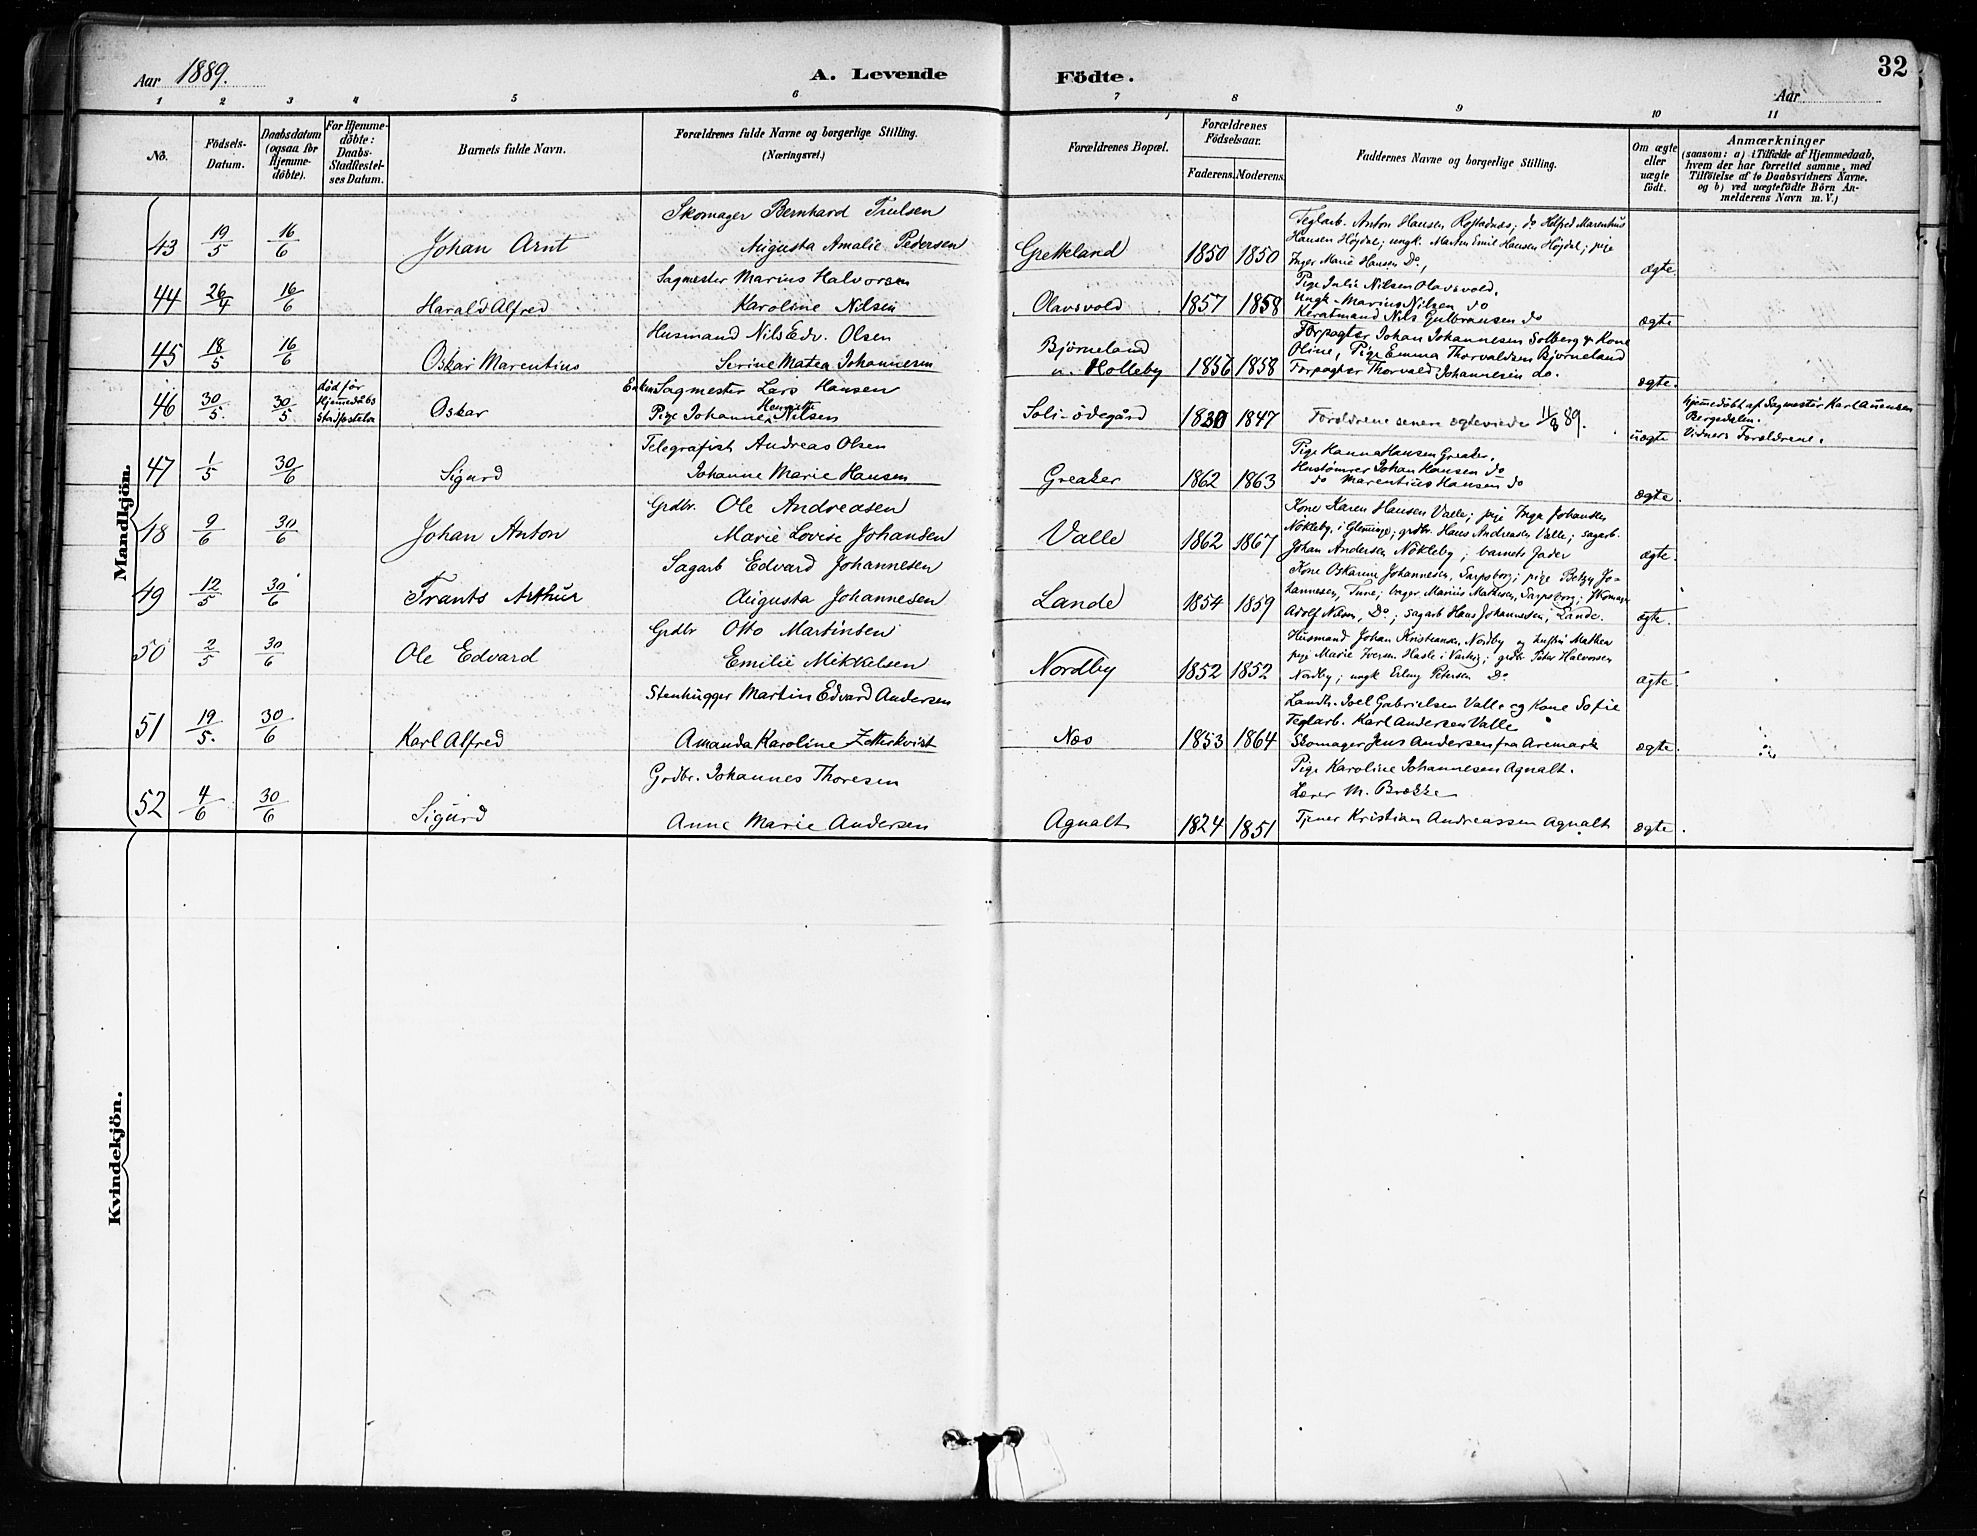 Aar 1889.
A. Levende Födte.
Aar
32
1 2 3 4 5 6 7 8 9 10 11
No.
Födsels-Datum.
Daabsdatum (ogsaa for Hjemme-döbte).
For Hjemme-döbte: Daabs-Stadfæstel-ses Datum.
Barnets fulde Navn.
Forældrenes fulde Navne og borgerlige Stilling. (Næringsvei.)
Forældrenes Bopæl.
Forældrenes Födselsaar.
Faderens. Moderens.
Faddernes Navne og borgerlige Stilling.
Om ægte eller uægte födt.
Anmærkninger (saasom: a) i Tilfælde af Hjemmedaab, hvem der har forrettet samme, med Tilföielse af to Daabsvidners Navne. og b) ved uægtefödte Börn An-melderens Navn m. V.)
Mandkjön.
Skomager Bernhard Truelsen
43 19/5 16/6 Johan Arnt Augusta Amalie Pedersen Gretteland 1850 1850 ægte
Teglarb. Anton Hansen ; do Helfred Marenthius
Hansen Højdal; ungk. Martin Emil Hansen Højdal; pige
Inger Marie Hansen Do,
Sagmester Marius Halvorsen
44 26/4 16/6 Harald Alfred Karoline Nilsen Olavsvold 1857 1858 ægte
Pige Julie Nilsen Olavsvold.
Ungk. Marius Nilsen do
Nils Gulbransen do
Husmand Nils Edv. Olsen
45 18/5 16/6 Oskar Marentius Serine Matea Johannesen Bjørneland u. Holleby 1856 1858 ægte.
Forpagter Johan Johannesen Solberg & Kone
Oline, Pige Emma Thorvaldsen Bjørneland
Forpagter Thorvald Johannesen do.
død før Hjemmedåbs Stadfæstelse
Enkem Sagmester Lars Hansen
46 30/5. 30/5 Oskar Pige Johanne Henriette Nilsen Soli-ødegård 1830 1847 Forældrene senere ægteviede 11/8 89. uægte
Hjemmedøbt af Sagmester Karl
Bergsdalen.
Vidner: Forældrene.
Telegrafist Andreas Olsen
47 1/5 30/6 Sigurd Johanne Marie Hansen Greaker 1862 1863 ægte.
Pige Hanna Hansen Greaker.
Hustømrer Johan Hansen do
do Marentius Hansen do
Grdbr. Ole Andreasen
48 9/6 30/6 Johan Anton Marie Lovise Johansen Valle 1862 1867 ægte.
Kone Karen Hansen Valle; pige Inga Johansen
Nökleby i Glemminge; grdbr. Hans Andreasen Valle; sagarb.
Johan Andersen Nökleby; barnets fader
Sagarb Edvard Johannesen
49 12/5 30/6 Frants Arthur Augusta Johannesen Lande 1854 1859 ægte.
Kone Oskarine Johannesen, Sarpsborg; pige Betzy Jo-
hannesen, Tune; Marius Mathisen, Sarpsborg; Skomager
Adolf Nilsen, Do; sagarb Hans Johannesen, Lande.
Grdbr Otto Martinsen
50 2/5 30/6 Ole Edvard Emilie Mikkelsen Nordby 1852 1852 ægte.
Husmand Johan Kristiansen Nordby og hustru Mathea
pige Marie Iversen Hasle i Varteig; grdbr Peter Halvorsen
Nordby; ungk Erling Petersen Do
Stenhugger Martin Edvard Andersen
51 19/5. 30/6 Karl Alfred Amanda Karoline Zetterkvist Næs 1853 1864 ægte.
Landh. Joel Gabrielsen Valle og Kone Sofie
Teglarb. Karl Andersen Valle
Skomager Jens Andersen fra Aremark
Grdbr. Johannes Thoresen
52 4/6 30/6 Sigurd Anne Marie Andersen Agnalt 1824 1851 ægte.
Pige Karoline Johannesen Agnalt.
Lærer M. Brække
Tjener Kristian Andreassen Agnalt
Kvindekjön.